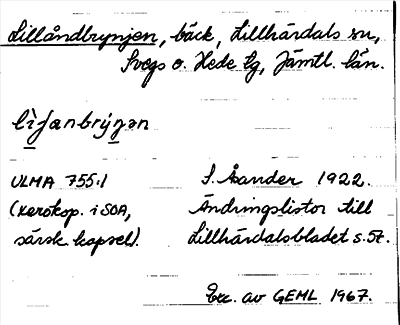 Lillåndbrynjen, bäck, Lillhärdals sn,
Svegs o. Hede tg, Jämtl. län.
ULMA 755:1 S. Åsander 1922.
(xerokop. i SOA, Ändringslistor till
särsk. kapsel). Lillhärdalsbladet s.57.
Exc. av GEML 1967.